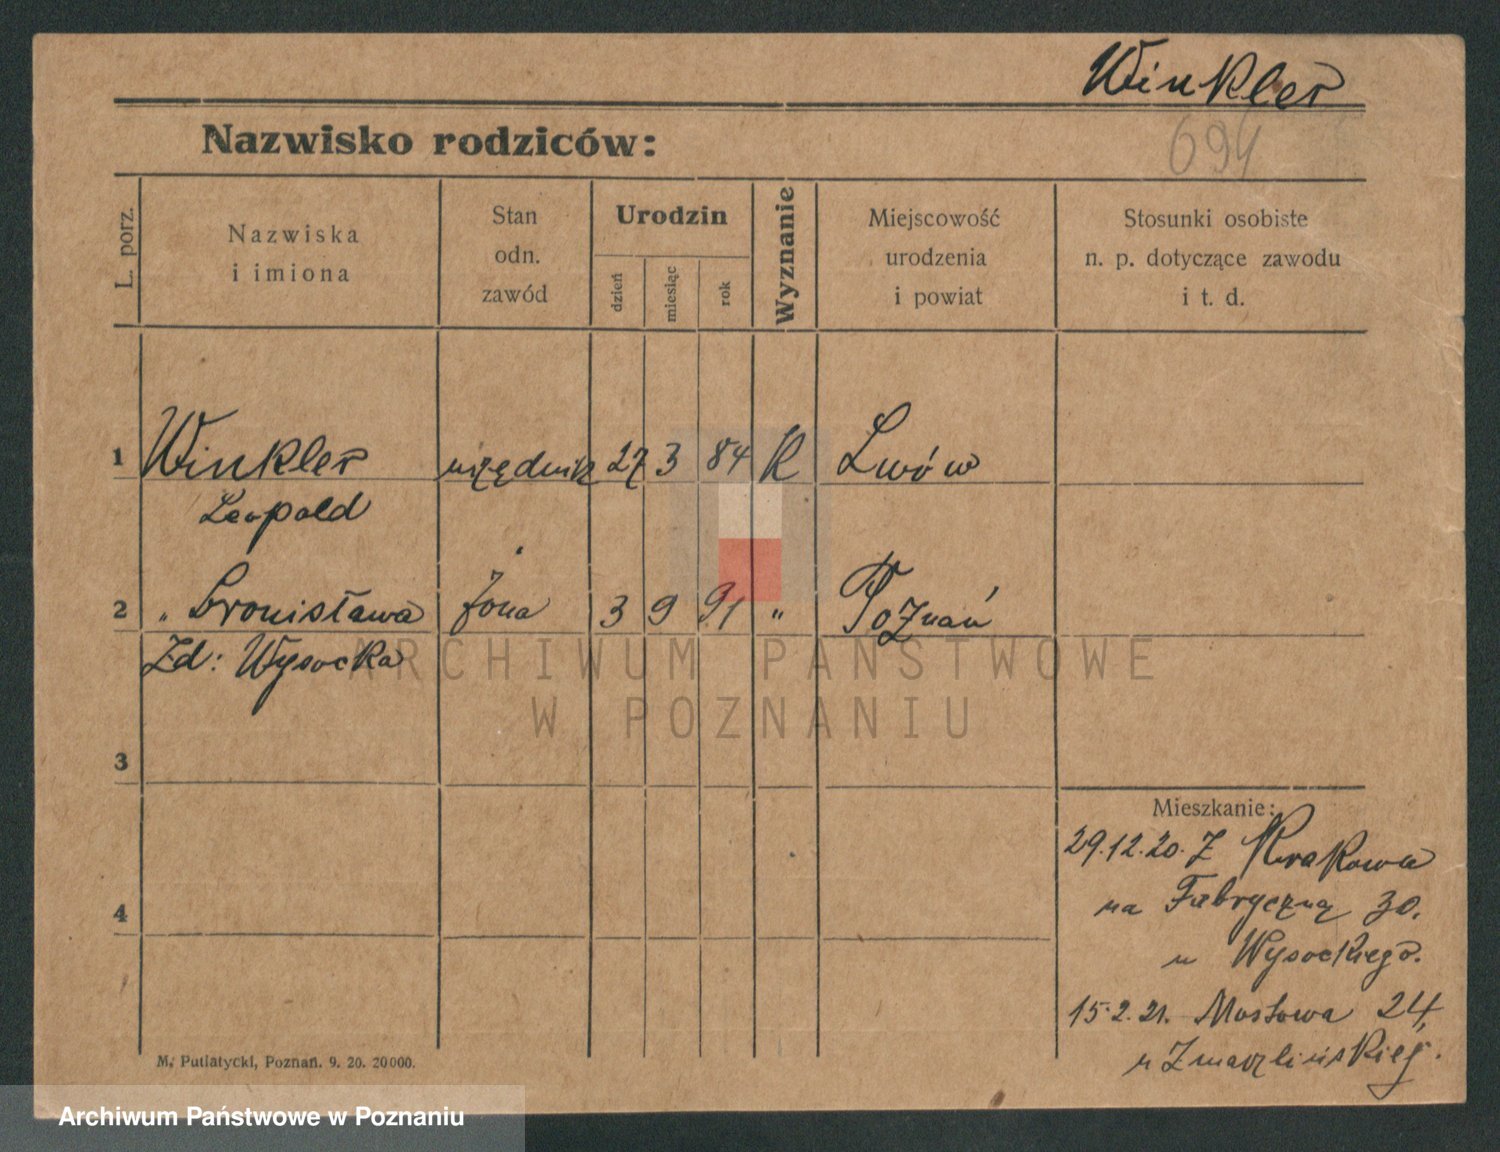 Winkler
694
Nazwisko rodziców:
L. porz.
Nazwiska
i imiona
Stan
odn.
zawód
Urodzin
dzień
miesiąc
rok
Wyznanie
Miejscowość
urodzenia
i powiat
Stosunki osobiste
n. p. dotyczące zawodu
i t. d.
1 Winkler urzędnik 27 3 84 K Lwów
Leopold
2 „ Bronisława żona 3 9 91 „ Poznań
Zd: Wysocka
ARCHIWUM PAŃSTWOWE
W POZNANIU
3
Mieszkanie:
29.12.20. Z Krakowa
na Fabryczną 30.
u Wysockiego.
4
15.2.21. Mostowa 24,
u
M. Putiatycki, Poznań. 9. 20. 20000.
Archiwum Państwowe w Poznaniu